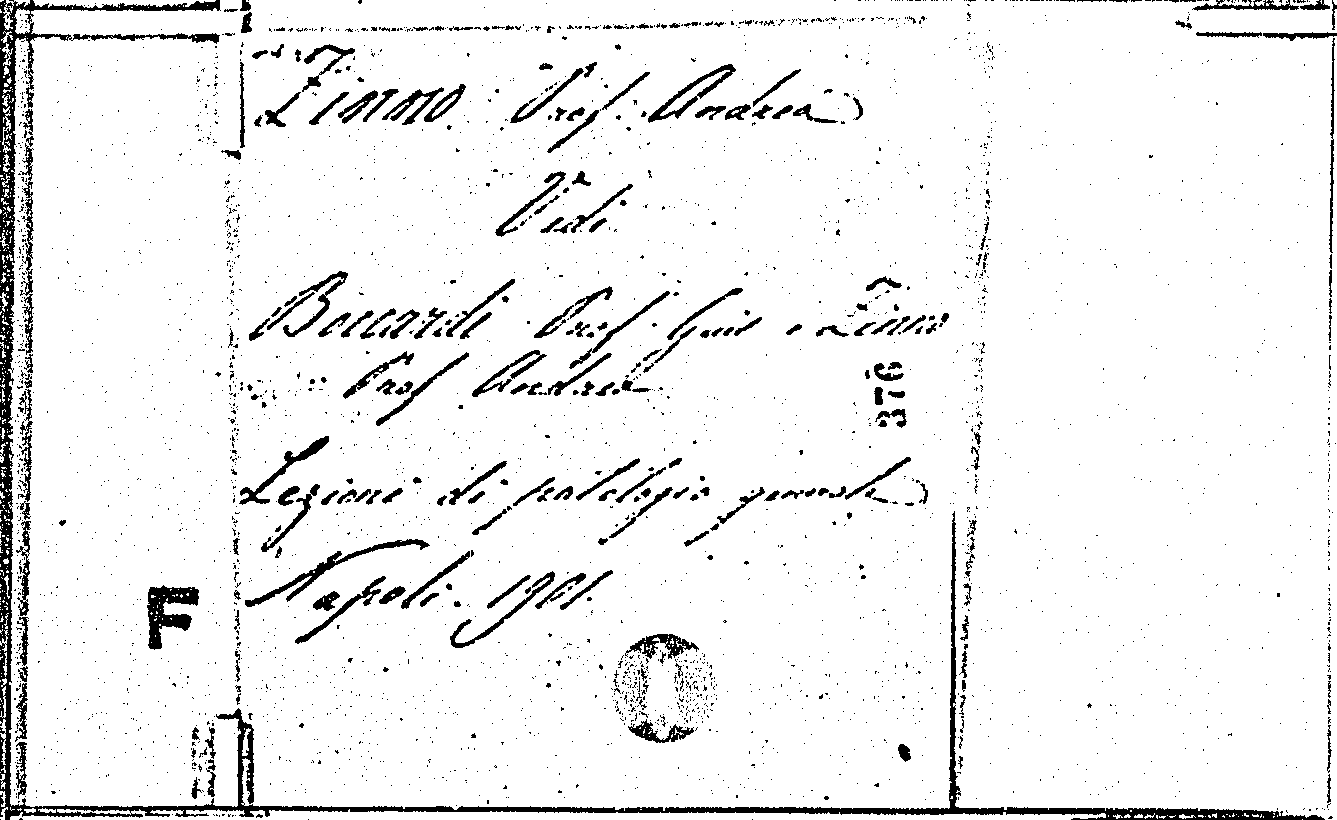 Zinno Prof. Andrea
Vedi
Boccardi Prof. Gius e Zinno
Prof Andrea
376
Lezioni di patologia generale
Napoli. 1901.
F